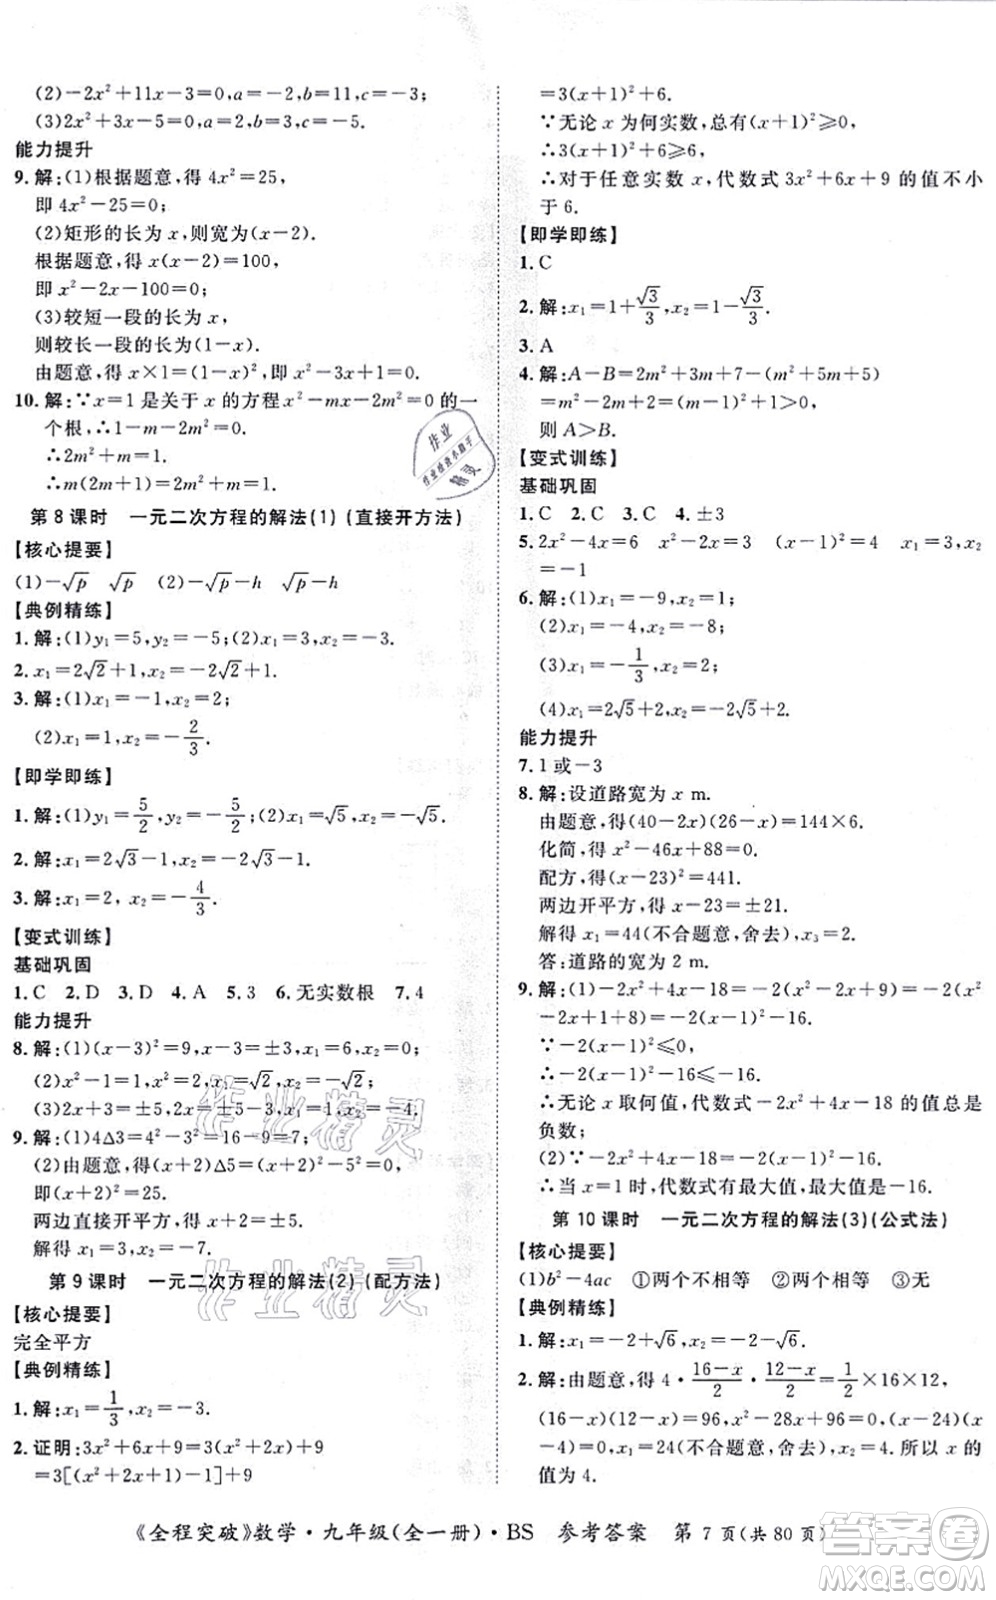 (2)−2x²+11x−3=0,a=−2,b=11,c=−3;
(3)2x²+3x−5=0,a=2,b=3,c=−5.
能力提升
9.解:(1)根据题意,得 4x²=25,
即 4x²−25=0;
(2)矩形的长为 x,则宽为(x−2).
根据题意,得 x(x−2)=100,
即 x²−2x−100=0;
(3)较短一段的长为 x,
则较长一段的长为(1−x).
由题意,得 x×1=(1−x)²,即 x²−3x+1=0.
10.解:∵x=1 是关于 x 的方程 x²−mx−2m²=0 的一
个根,∴1−m−2m²=0.
∴2m²+m=1.
∴m(2m+1)=2m²+m=1.
第 8 课时 一元二次方程的解法(1)(直接开方法)
【核心提要】
(1)−√p √p (2)−√p−h √p−h
【典例精练】
1.解:(1)y₁=5,y₂=−5;(2)x₁=3,x₂=−3.
2.x₁=2√2+1,x₂=−2√2+1.
3.解:(1)x₁=−1,x₂=2;
(2)x₁=1,x₂=−2/3.
【即学即练】
1.解:(1)y₁=5/2,y₂=−5/2;(2)x₁=√5,x₂=−√5.
2.解:x₁=2√3−1,x₂=−2√3−1.
3.解:x₁=2,x₂=−4/3.
【变式训练】
基础巩固
1.C 2.D 3.D 4.A 5.3 6.无实数根 7.4
能力提升
8.解:(1)(x−3)²=9,x−3=±3,x₁=6,x₂=0;
(2)x²−1=1,x²=2,x₁=√2,x₂=−√2;
(3)2x+3=±5,2x=±5−3,x₁=1,x₂=−4.
9.解:(1)4△3=4²−3²=16−9=7;
(2)由题意,得(x+2)△5=(x+2)²−5²=0,
即(x+2)²=25.
两边直接开平方,得 x+2=±5.
解得 x₁=3,x₂=−7.
第 9 课时 一元二次方程的解法(2)(配方法)
【核心提要】
完全平方
【典例精练】
1.解:x₁=1/3,x₂=−3.
2.证明:3x²+6x+9=3(x²+2x)+9
=3[(x²+2x+1)−1]+9
=3(x+1)²+6.
∵无论 x 为何实数,总有(x+1)²⩾0,
∴3(x+1)²+6⩾6.
∴对于任意实数 x,代数式 3x²+6x+9 的值不小
于 6.
【即学即练】
1.C
2.解:x₁=1+√3/3,x₂=1−√3/3.
3.A
4.解:A−B=2m²+3m+7−(m²+5m+5)
=m²−2m+2=(m−1)²+1>0,
则 A>B.
【变式训练】
基础巩固
1.C 2.C 3.C 4.±3
5.2x²−4x=6 x²−2x=3 (x−1)²=4 x₁=3,x₂
=−1
6.解:(1)x₁=−9,x₂=1;
(2)x₁=−4,x₂=−8;
(3)x₁=−1/3,x₂=2;
(4)x₁=2√5+2,x₂=−2√5+2.
能力提升
7.1 或−3
8.解:设道路宽为 x m.
由题意,得(40−2x)(26−x)=144×6.
化简,得 x²−46x+88=0.
配方,得(x−23)²=441.
两边开平方,得 x−23=±21.
解得 x₁=44(不合题意,舍去),x₃=2.
答:道路的宽为 2 m.
9.解:(1)−2x²+4x−18=−2(x²−2x+9)=−2(x²
−2x+1+8)=−2(x−1)²−16.
∵−2(x−1)²⩽0,
∴−2(x−1)²−16⩽−16.
∴无论 x 取何值,代数式−2x²+4x−18 的值总是
负数;
(2)∵−2x²+4x−18=−2(x−1)²−16,
∴当 x=1 时,代数式有最大值,最大值是−16.
第 10 课时 一元二次方程的解法(3)(公式法)
【核心提要】
(1)b²−4ac ①两个不相等 ②两个相等 ③无
【典例精练】
1.解:x₁=−2+√6,x₂=−2−√6.
2.解:由题意,得 4·(16−x)/2·(12−x)/2=1/2×16×12,
(16−x)(12−x)=96,x²−28x+96=0,(x−24)(x
−4)=0,x₁=24(不合题意,舍去),x₂=4.所以 x 的
值为 4.
《全程突破》数学·九年级(全一册)·BS 参考答案 第 7 页(共 80 页)
作业
作业检查小助手
精灵
作业精灵
作业精灵
作业精灵
MXQE.COM